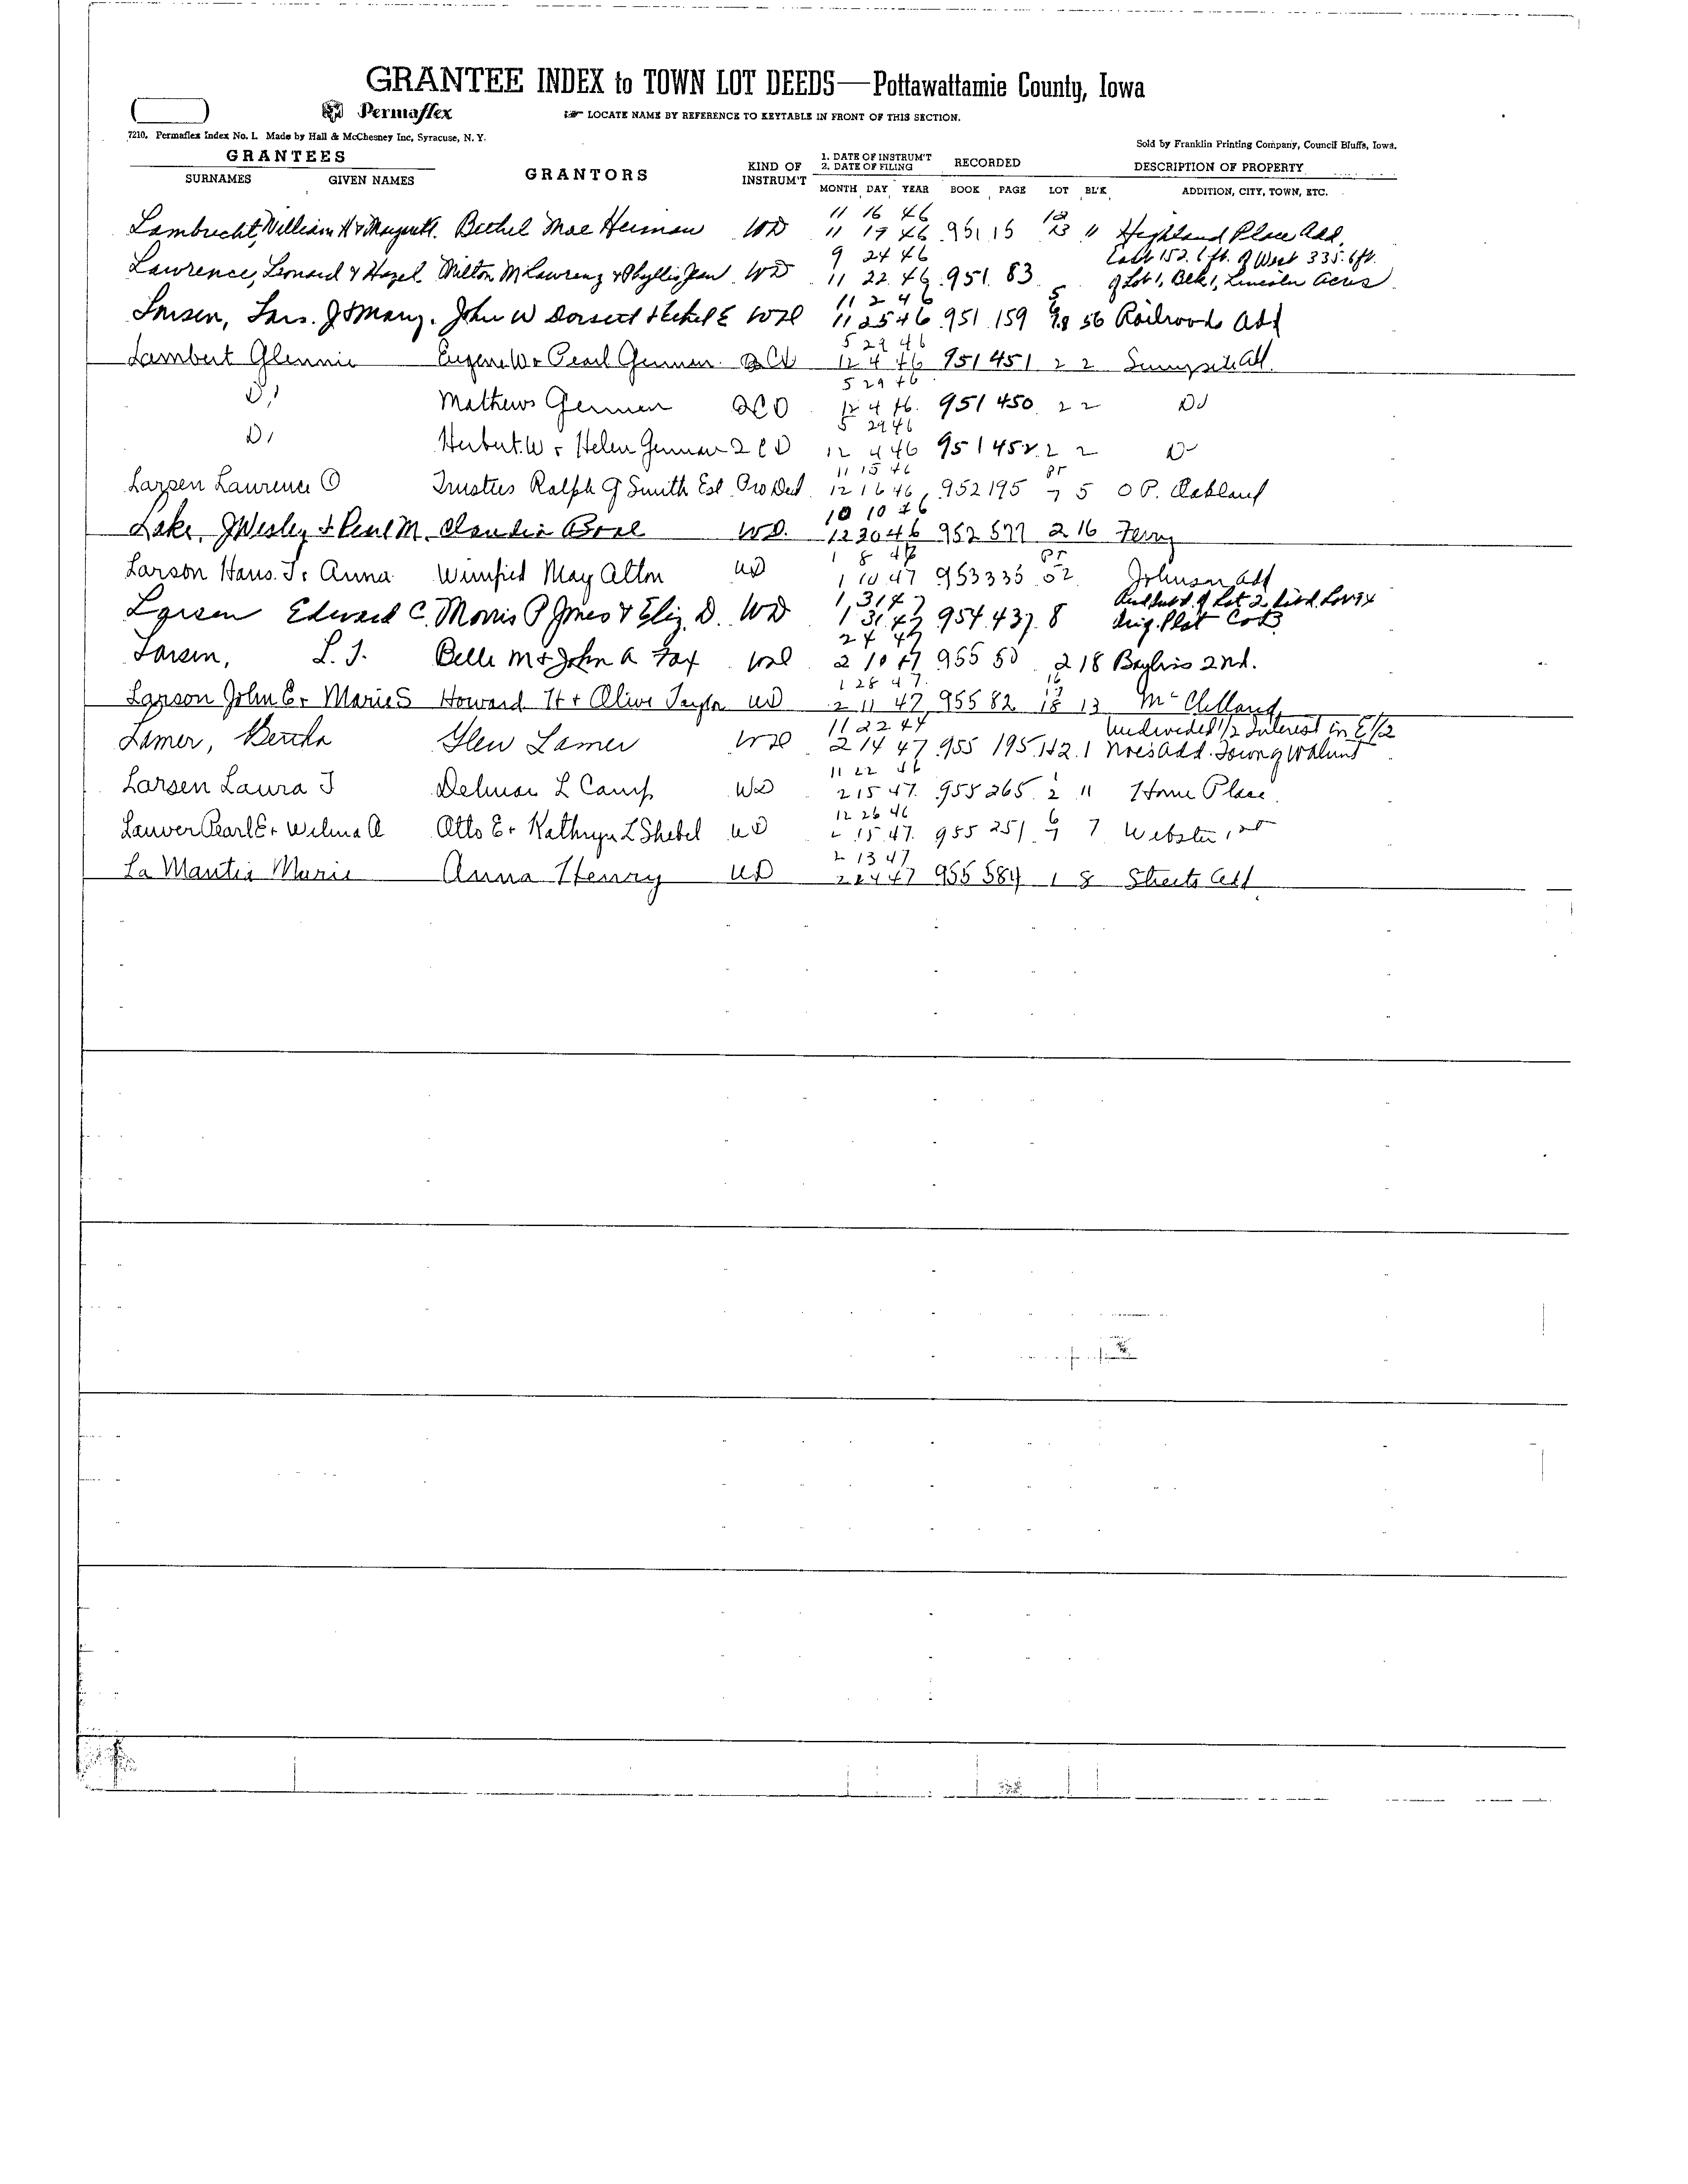 GRANTEE INDEX to TOWN LOT DEEDS—Pottawattamie County, Iowa
Permaflex
LOCATE NAME BY REFERENCE TO KEYTABLE IN FRONT OF THIS SECTION.
7210. Permaflex Index No. L Made by Hall & McChesney Inc, Syracuse, N. Y.
Sold by Franklin Printing Company, Council Bluffs, Iowa.
GRANTEES GRANTORS KIND OF INSTRUM'T 1. DATE OF INSTRUM'T 2. DATE OF FILING RECORDED DESCRIPTION OF PROPERTY
SURNAMES GIVEN NAMES MONTH DAY YEAR BOOK PAGE LOT BL'K ADDITION, CITY, TOWN, ETC.
11 16 46 12
Lambrecht, William H & Bethel Mae Herman WD 11 19 46 951 15 13 11 Highland Place Add.
9 24 46 East 152.6 ft. of West 335.6 ft.
Lawrence, Leonard & Hazel Milton M Lawrence & Phyllis Jean WD 11 22 46 951 83 of Lot 1, Blk 1, Lincoln Acres
11 2 46 5
Larsen, Lars. J & Mary. John W Dorsett & Ethel E WD 11 25 46 951 159 56 Railroad Add
5 29 46
Lambert Glennie Eugene W & Pearl German QCD 12 4 46 951 451 2 2 Sunnyside Add
5 29 46
Do Mathews German QCD 12 4 46 951 450 2 2 Do
5 29 46
Do Herbert W & Helen German QCD 12 4 46 951 452 2 2 Do
11 15 46 pt
Larsen Laurence O Trustees Ralph G Smith Est 12 16 46 952 195 7 5 O P. Oakland
10 10 46
Lake, J Wesley & Pearl M. Claudia WD. 12 30 46 952 577 2 16 Ferry
1 8 47 pt
Larson Hans. J & Anna Winifred May Alton WD 1 10 47 953 335 52 Johnson Add
1 31 47 Aud Subd of Lot 2
Larsen Edward C. Morris P Jones & Eliz. D. WD 1 31 47 954 437 8 Orig. Plat CoB
2 4 47
Larsen, L. J. Belle M & John A Fox WD 2 10 47 955 50 2 18 Bayliss 2nd.
1 28 47 16 17
Larson John E & Marie S Howard H & Olive Taylor WD 2 11 47 955 82 18 13 McClelland
11 22 44 Undivided 1/2 Interest in E 1/2
Lamer, Bertha Glen Lamer WD 2 14 47 955 195 1&2 1 Noe's Add. Town of Walnut
11 22 46 1
Larsen Laura J Delmar L Camp WD 2 15 47 955 265 2 11 Home Place
12 26 46 6
Lauver Pearl E & Wilma A Otto E & Kathryn L Shebel WD 2 15 47 955 251 7 7 Webster 1st
2 13 47
La Mantia Marie Anna Henry WD 2 24 47 955 584 1 8 Streets Add